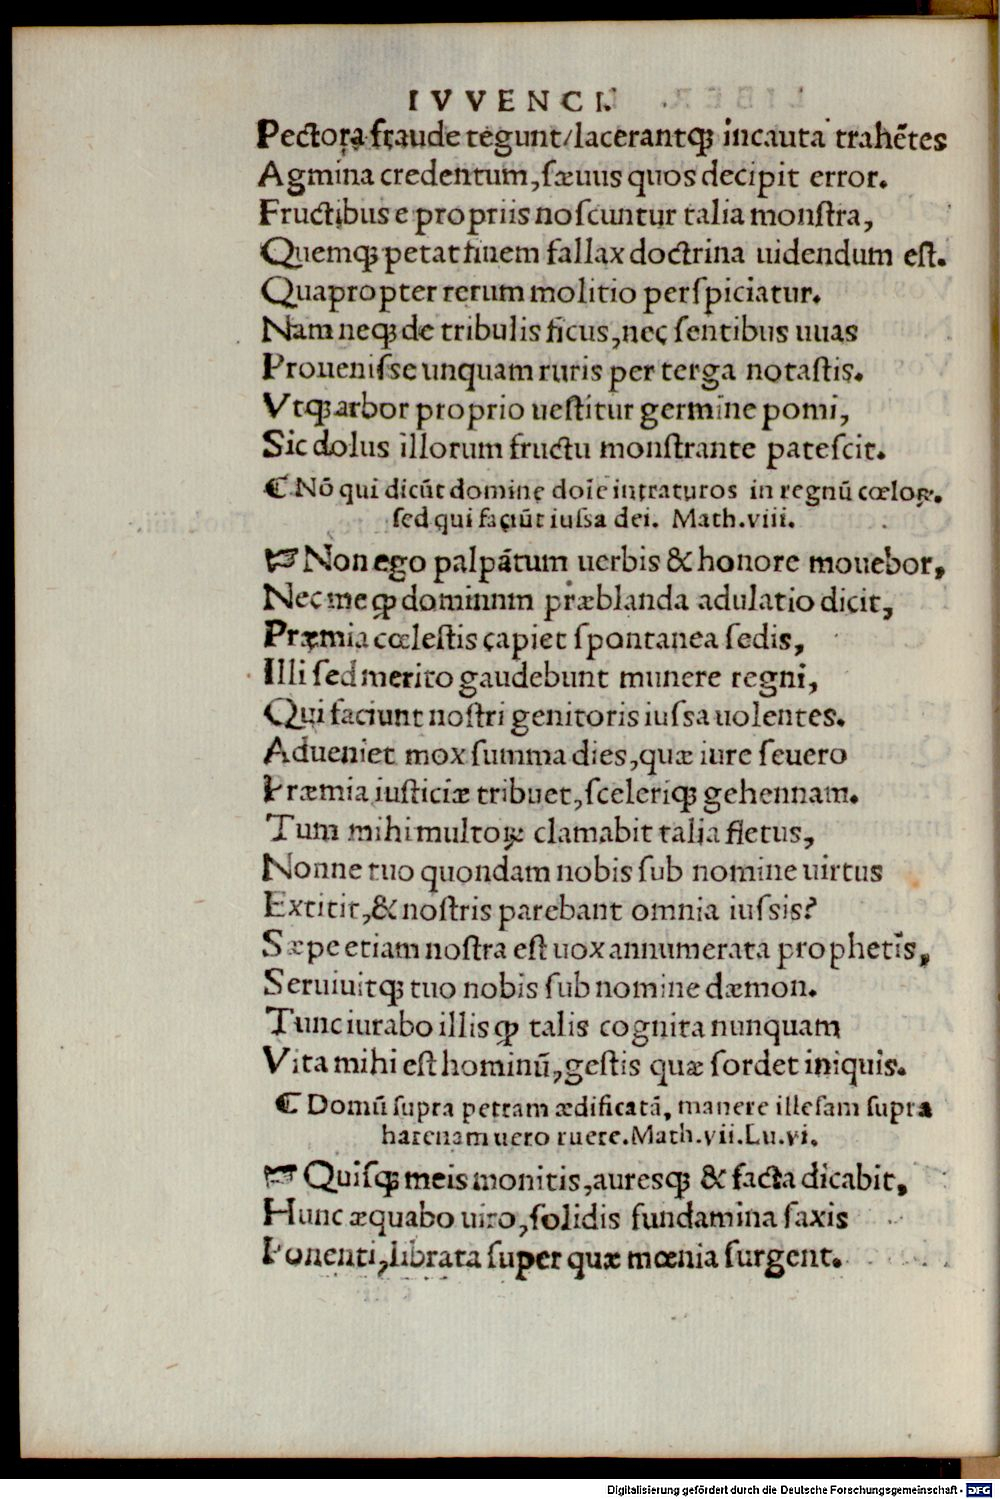 IVVENCI.
Pectora fraude tegunt/lacerantqꝫ incauta trahẽtes
Agmina credentum, sæuus quos decipit error.
Fructibus e propriis noſcuntur talia monſtra,
Quemqꝫ petat finem fallax doctrina uidendum eſt.
Quapropter rerum molitio perſpiciatur.
Nam neqꝫ de tribulis ficus, nec ſentibus uuas
Proueniſſe unquam ruris per terga notaſtis.
Vtqꝫ arbor proprio ueſtitur germine pomi,
Sic dolus illorum fructu monſtrante pateſcit.
⸿ Nõ qui dicũt domine doĩe intraturos in regnũ cœloꝝ.
ſed qui faciũt iuſſa dei. Math.viii.
☞ Non ego palpãtum uerbis & honore mouebor,
Nec me ꝙ dominum præblanda adulatio dicit,
Præmia cœleſtis capiet ſpontanea ſedis,
Illi ſed merito gaudebunt munere regni,
Qui faciunt noſtri genitoris iuſſa uolentes.
Adueniet mox ſumma dies, quæ iure ſeuero
Præmia iuſticiæ tribuet, ſceleriqꝫ gehennam.
Tum mihi multoꝝ clamabit talia fletus,
Nonne tuo quondam nobis ſub nomine uirtus
Extitit, & noſtris parebant omnia iuſsis?
Sæpe etiam noſtra eſt uox annumerata prophetis,
Seruiuitqꝫ tuo nobis ſub nomine dæmon.
Tunc iurabo illis ꝙ talis cognita nunquam
Vita mihi eſt hominũ, geſtis quæ ſordet iniquis.
⸿ Domũ ſupra petram ædificatã, manere illeſam ſupra
harenam uero ruere. Math.vii. Lu.vi.
☞ Quiſqꝫ meis monitis, aureſqꝫ & facta dicabit,
Hunc æquabo uiro, ſolidis fundamina ſaxis
Ponenti, librata ſuper quæ mœnia ſurgent.
Digitalisierung gefördert durch die Deutsche Forschungsgemeinschaft - DFG